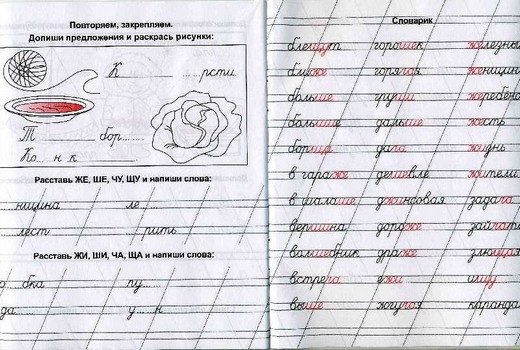 Повторяем, закрепляем.
Допиши предложения и раскрась рисунки:
К ...рсти
Т бор...
Ко...н к
Расставь ЖЕ, ШЕ, ЧУ, ЩУ и напиши слова:
...нщина ле...
...лест ...рить
Расставь ЖИ, ШИ, ЧА, ЩА и напиши слова:
о...бка пу...
да у...н
Словарик
блещут горошек железны
ближе горячая женщин
больше груши жеребёно
большие дальше жесть
борща дача жизнь
в гараже дешевле жители
в шалаше джинсовая задача
вершина дороже
волшебник драже злющая
встреча ежи ищу
выше жгучая каранда